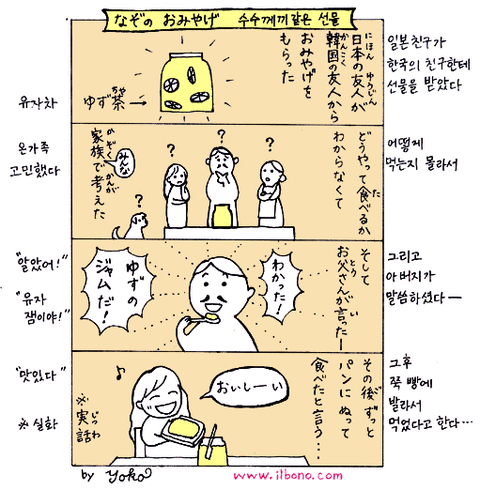 なぞの おみやげ 수수께끼같은 선물
日本の友人が
にほん ゆうじん
韓国の友人から
かんこく
おみやげを
もらった
ゆず茶→
ちゃ
일본친구가
한국의 친구한테
선물을 받았다
유자차
どうやって食べるか
た
わからなくて
家族で考えた
かぞく かんが
みんな
?
?
?
?
어떻게
먹는지 몰라서
온가족
고민했다
そして
お父さんが言った—
とう い
わかった!
ゆずの
ジャムだ!
그리고
아버지가
말씀하셨다—
"알았어!"
"유자
잼이야!"
その後ずっと
ご
パンにぬって
食べたと言う・・・
た い
おいしーい
♪
※実話
じつわ
그후
쭉 빵에
발라서
먹었다고 한다…
"맛있다"
※ 실화
by Yoko
www.ilbono.com